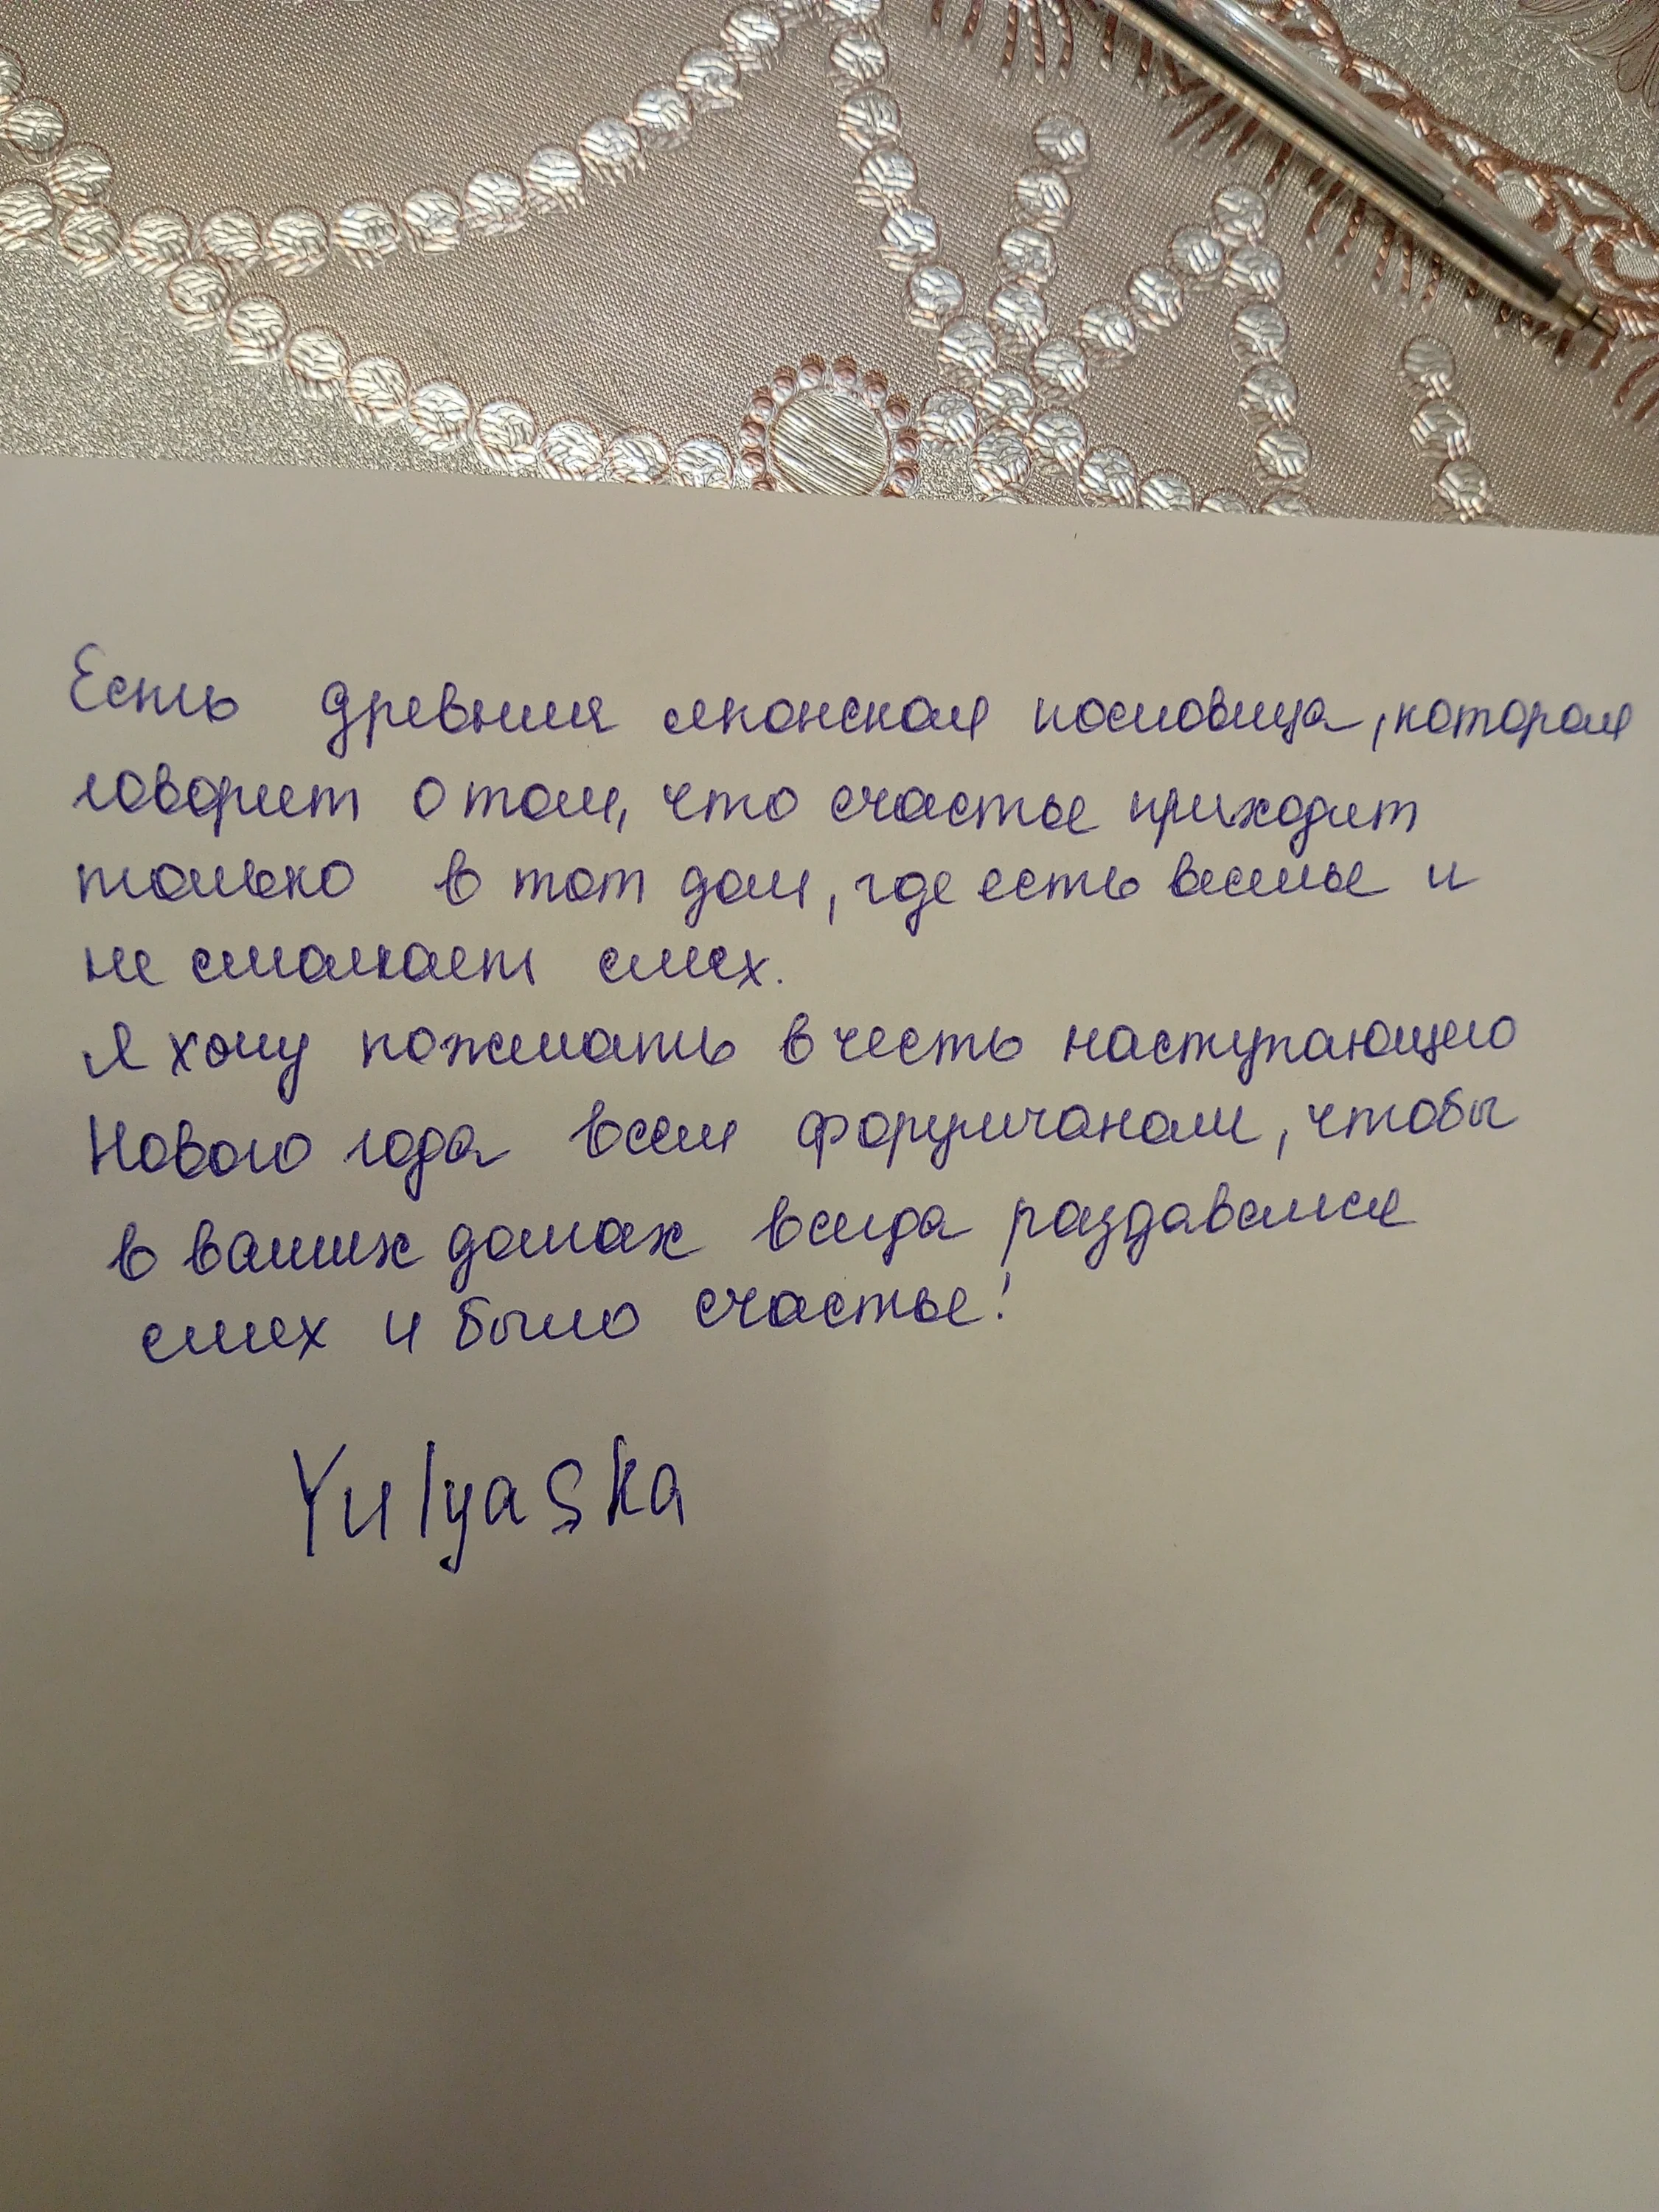 Есть древняя японская пословица, которая
говорит о том, что счастье приходит
только в тот дом, где есть веселье и
не смолкает смех.
Я хочу пожелать в честь наступающего
Нового года всем форумчанам, чтобы
в ваших домах всегда раздавался
смех и было счастье!
Yulyaska